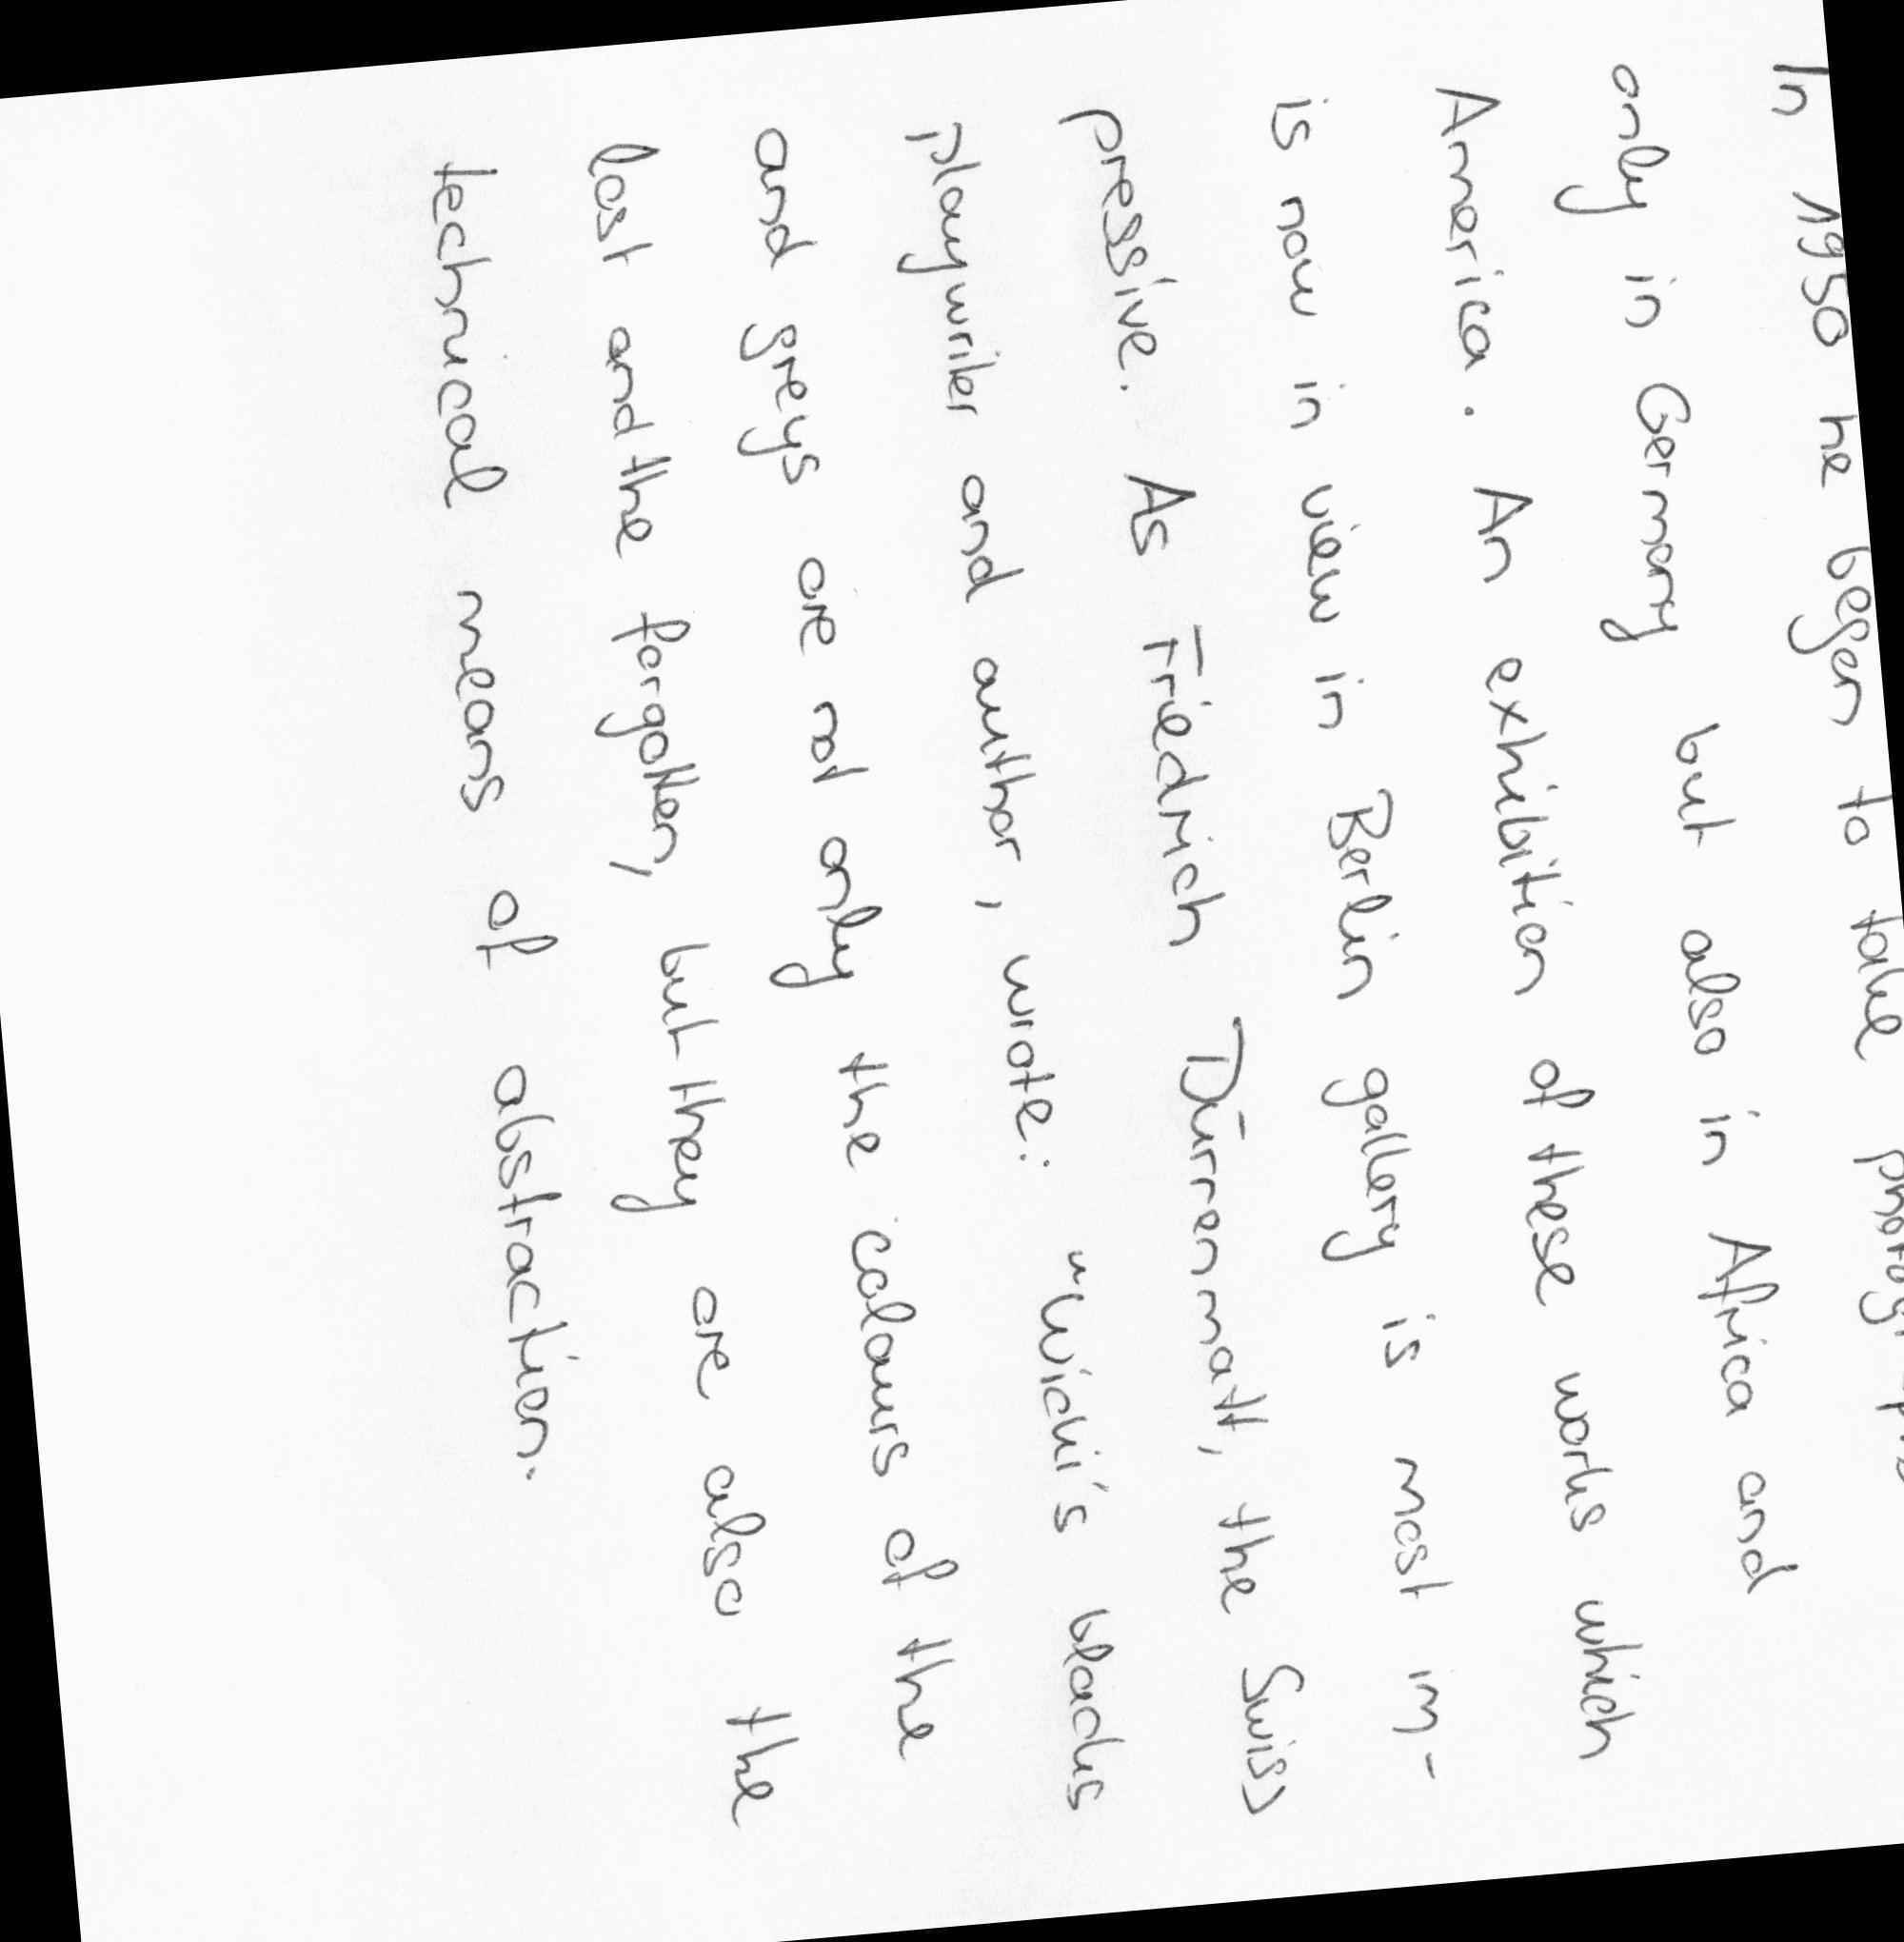 In 1950 he began to take photographs
only in Germany but also in Africa and
America. An exhibition of these works which
is now in view in Berlin gallery is most im-
pressive. As Friedrich Dürrenmatt, the Swiss
playwriter and author, wrote: "Wicki's blacks
and greys are not only the colours of the
lost and the forgotten, but they are also the
technical means of abstraction.